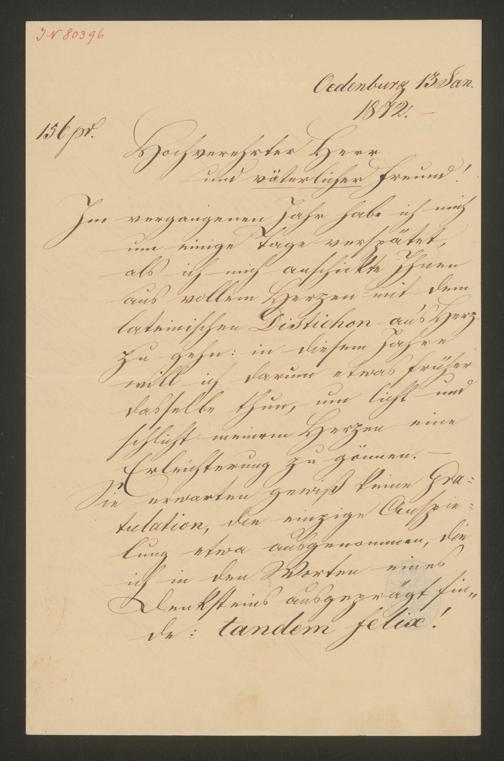 IN 80396
Oedenburg 13 Jan.
1872. –
156 pr.
Hochverehrter Herr
und väterlicher Freund!
Im vergangenen Jahr habe ich mich
um einige Tage verspätet,
als ich mich anschickte Ihnen
aus vollem Herzen mit dem
lateinischen Distichon an's Herz
zu gehn: in diesem Jahre
will ich darum etwas früher
dasselbe thun, um licht und
schlicht meinem Herzen eine
Erleichterung zu gönnen. –
Sie erwarten gewiß keine Gra=
tulation, die einzige Anspie=
lung etwa ausgenommen, die
ich in den Worten eines
Denksteins ausgeprägt fin=
de: tandem felix!